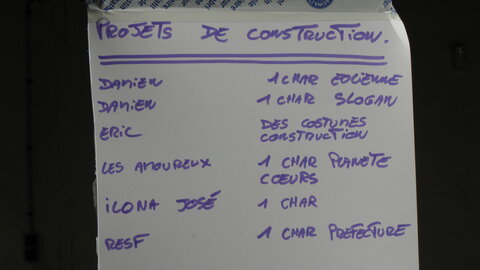 PROJETS DE CONSTRUCTION.
DAMIEN 1 CHAR EOLIENNE
DAMIEN 1 CHAR SLOGAN
ERIC DES COSTUMES CONSTRUCTION
LES AMOUREUX 1 CHAR PLANETE COEURS
iLONA JOSÉ 1 CHAR
RESF 1 CHAR PREFECTURE